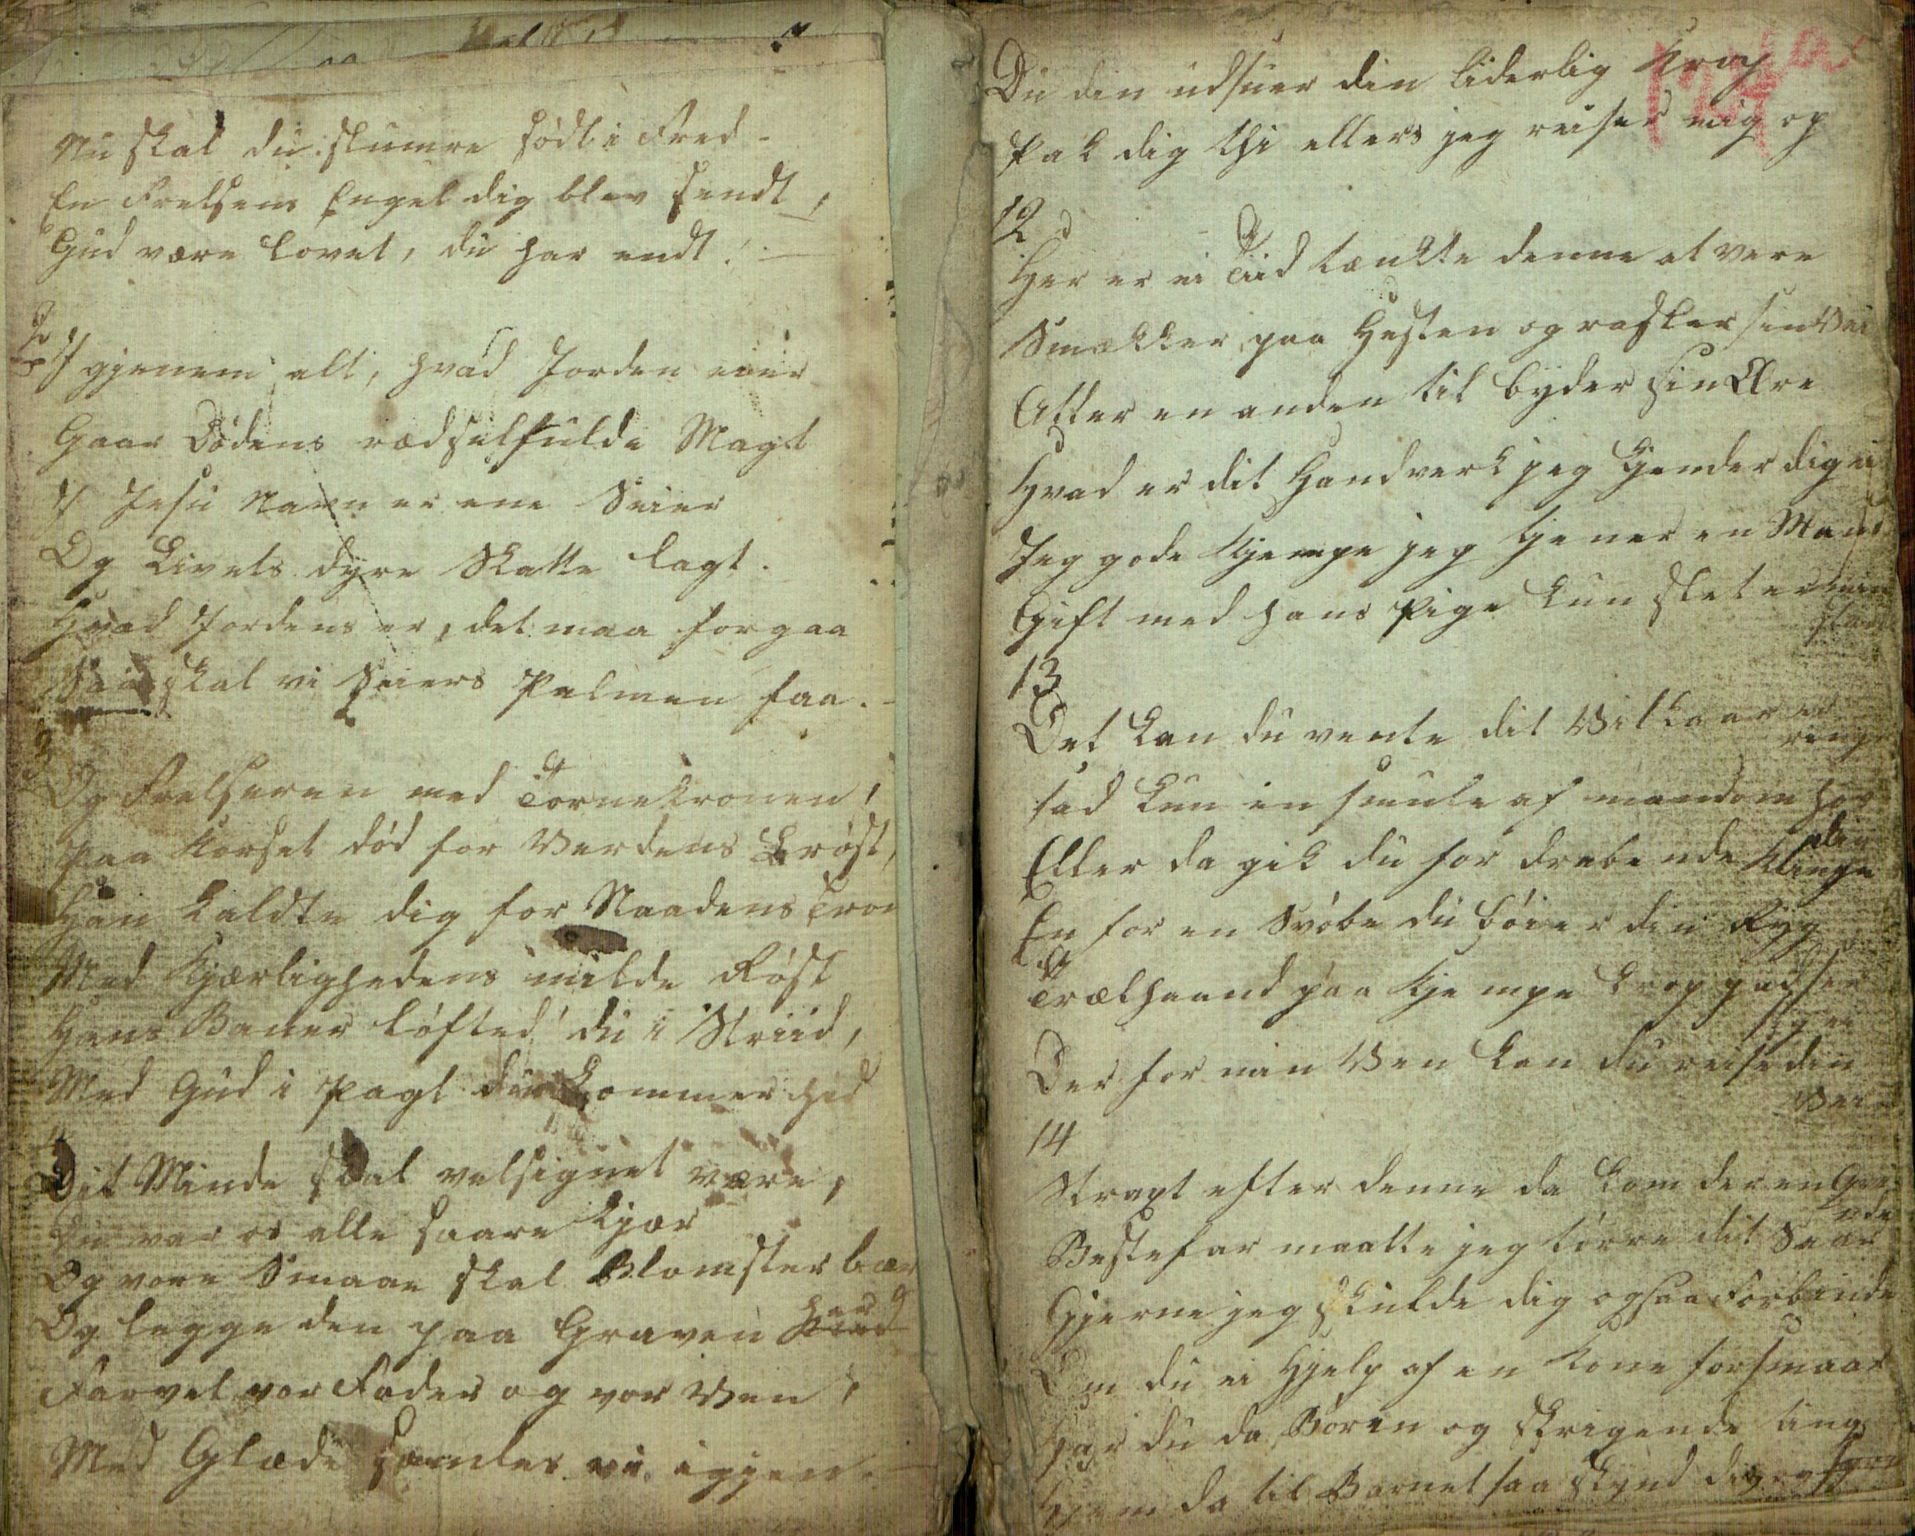 Nu skal du slumre sødt i Fred -
En Frelsens Engel dig blev sendt,
Gud være lovet, du har endt! -
2
I gjenem alt, hvad Jorden eier
Gaar Dødens rædselfulde Magt
I Jesu Navn er ene Seier
Og Livets dyre Skatte lagt.
Hvad Jordens er, det maa forgaa
Saa skal vi Seiers Palmen faa.
3
Og Frelseren med Tornekronen,
paa Korset død for Verdens Brøst,
Han kaldte dig for Naadens Tron
Med Kjærlighedens milde Røst
Hans Baner løfted' du i Striid,
Med Gud i Pagt du kommer hid
4
Dit Minde skal velsignet være,
Du var os alle saare kjær
Og vore Smaae skal Blomster bær
Og lægge den paa Graven her
Farvel vor Fader og vor Ven,
Med Glæde samles vi igjen.
Du den udsuer din liderlig Krop
Pak dig thi ellers jeg reiser mig op
12
Her er ei Tiid tænkte denne at vere
Smækker paa Hesten og rasker sin Vei
Atter en anden til byder sin Ære
Hvad er dit Handverk jeg kjender dig ei
Jeg gode Kjempe jeg tjener en Mand
Gift med hans Pige kun slet er min
stan
13
Det kan du vente dit Vilkaar er
ringe
sad kun en smule af mandom hos
dig
Eller da gik du for drabende Klinge
En for en Svøbe du bøier din Ryg
Trælhaand paa Kjempe krop passer
ei
Der for min Ven kan du reise din
Vei
14
Straxt efter denne da kom der en Qvi
nde
Bestefar maatte jeg tørre dit Saar
Gjerne jeg skulde dig ogsaa Forbinde
Om du ei Hjelp af en Kone forsmaar
Har du da Børen og skrigende ting
Hjem da til Barnet saa skynd dig